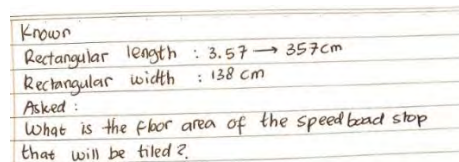 Known
Rectangular length : 3.57 → 357cm
Rectangular width : 138 cm
Asked :
What is the floor area of the speed boad stop
that will be tiled ?.